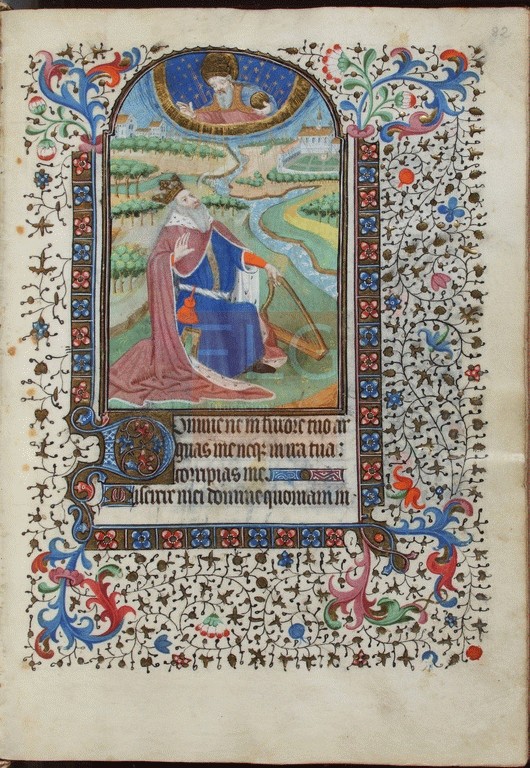 Domine ne in furore tuo ar
guas me neq; in ira tua:
corripias me.
Miserere mei domine quoniam in